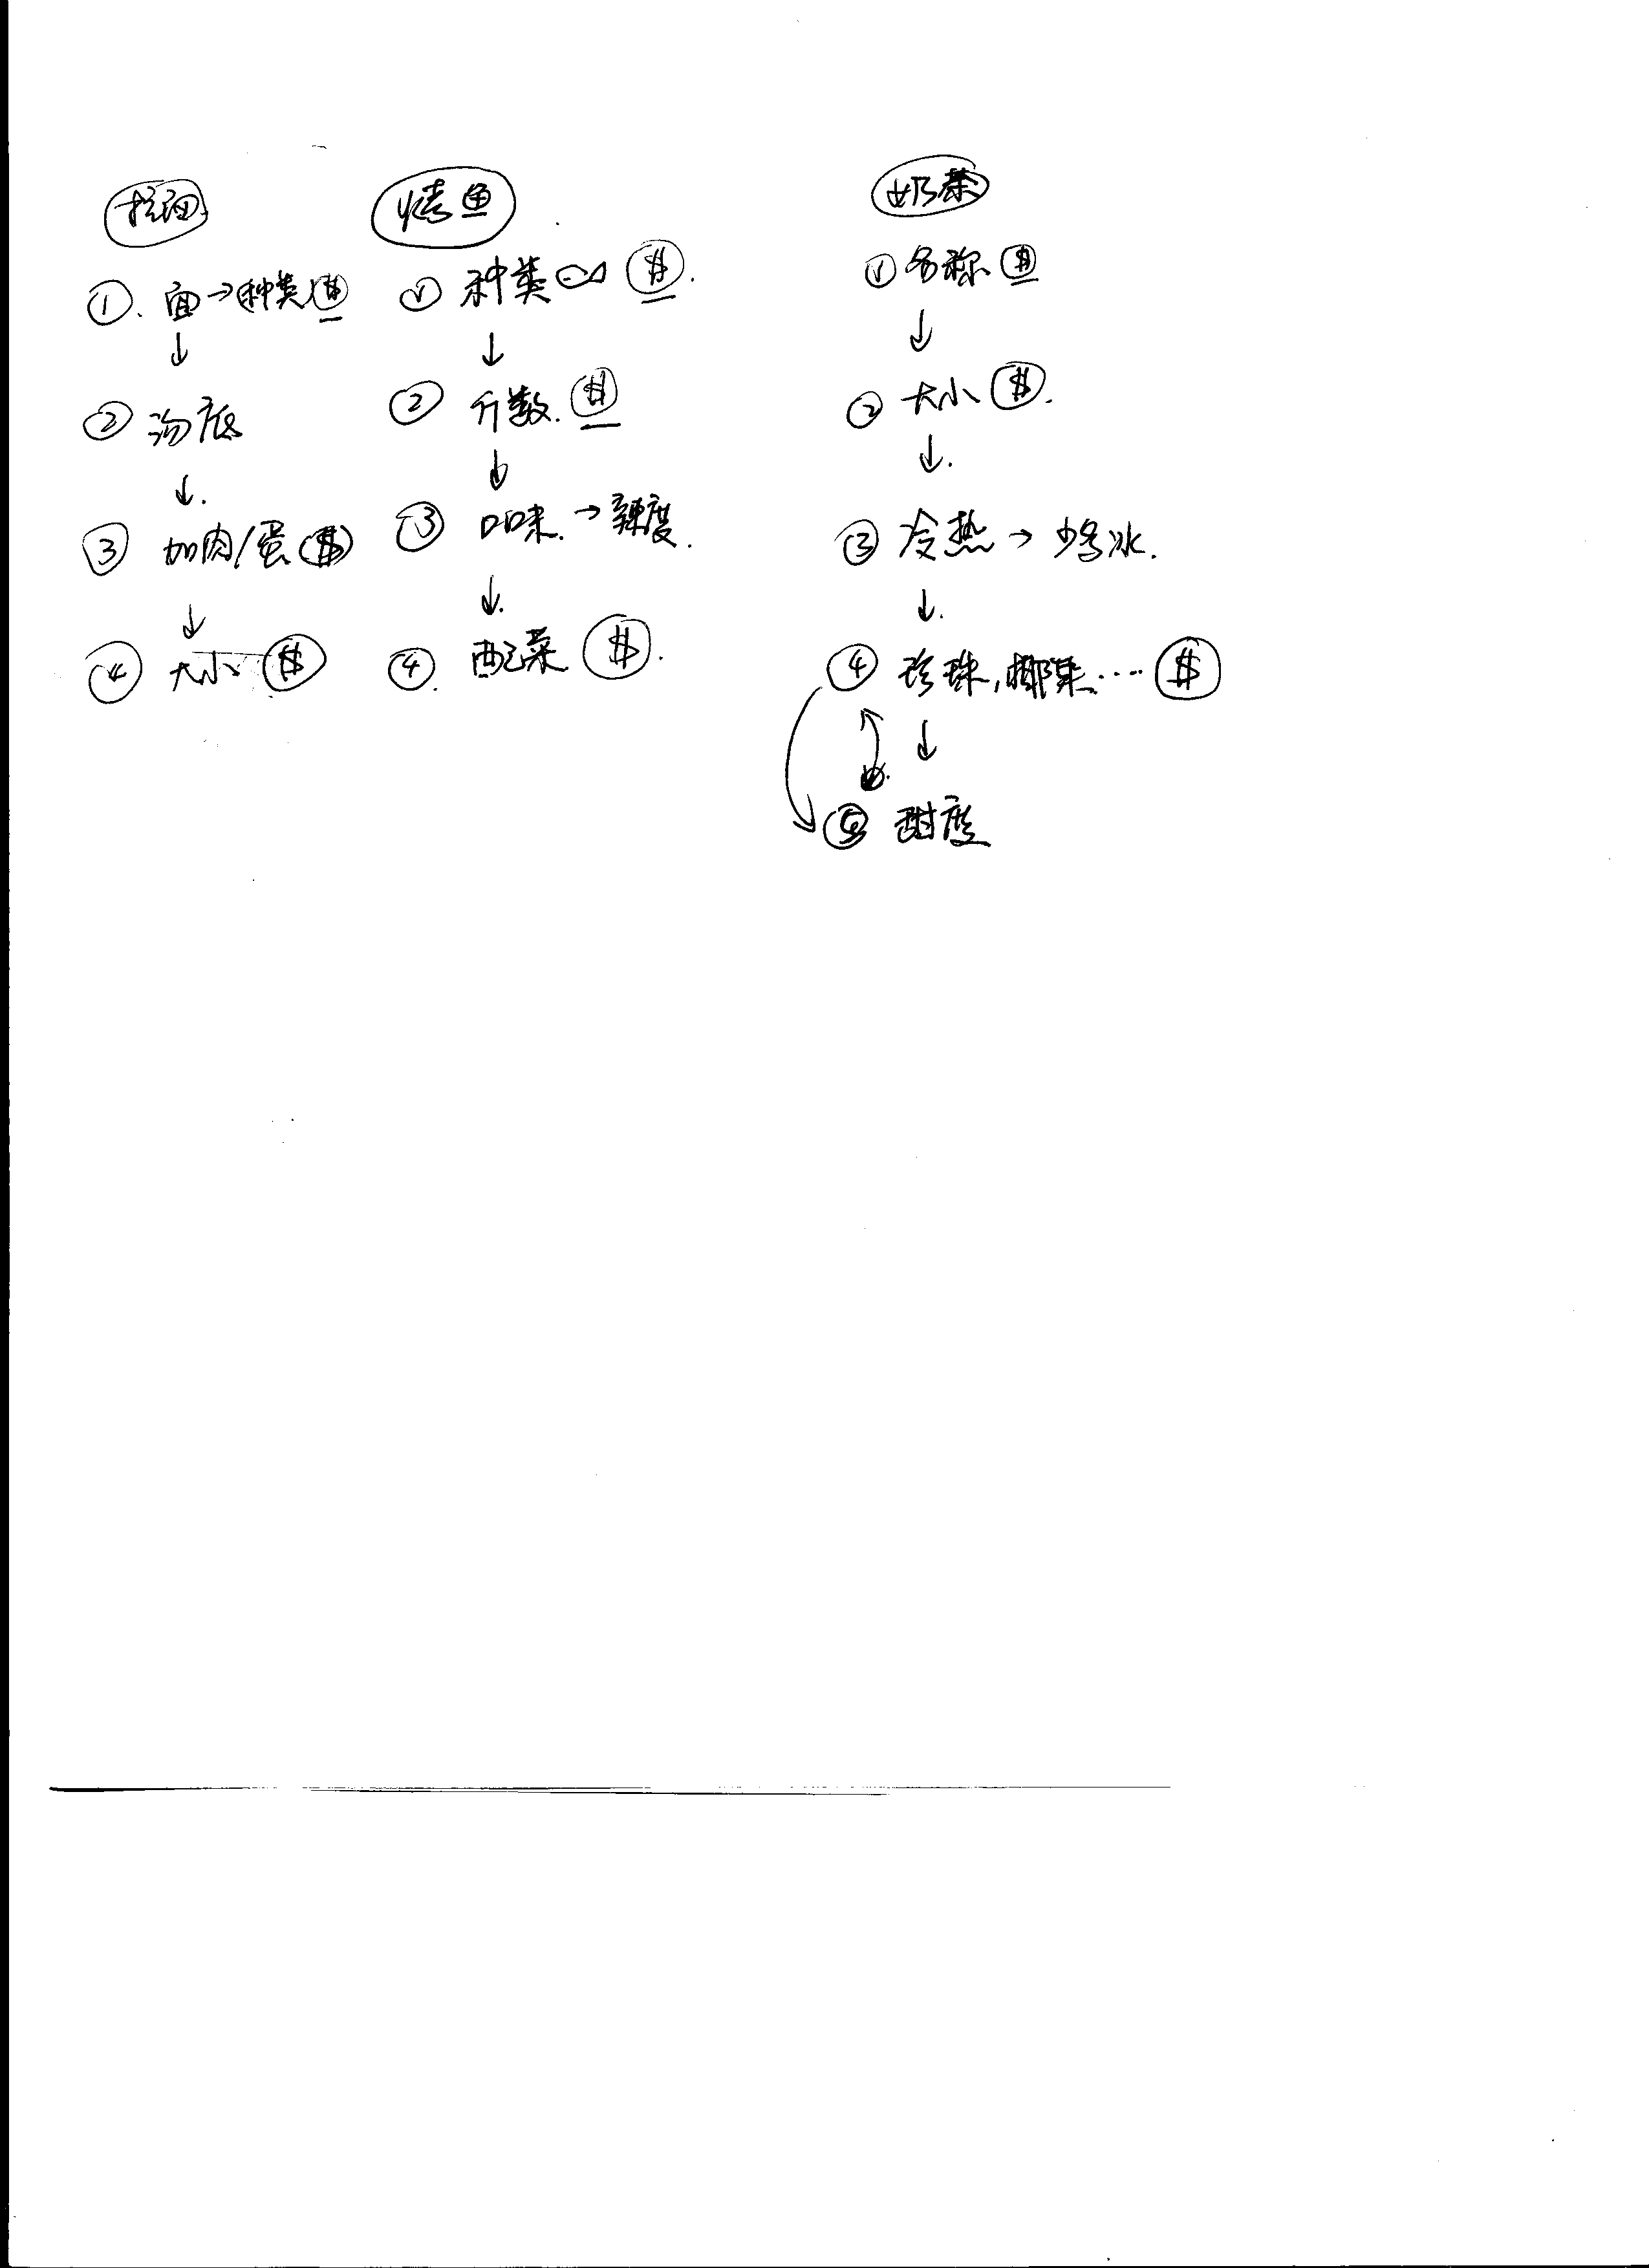 拉面
① 面→种类 $
↓
② 汤底
↓
③ 加肉/蛋 $
↓
④ 大小 $
烤鱼
① 种类 $
↓
② 斤数 $
↓
③ 口味→辣度
↓
④ 配菜 $
奶茶
① 名称 $
↓
② 大小 $
↓
③ 冷热→少多冰
↓
④ 珍珠,椰果… $
↓
⑤ 甜度